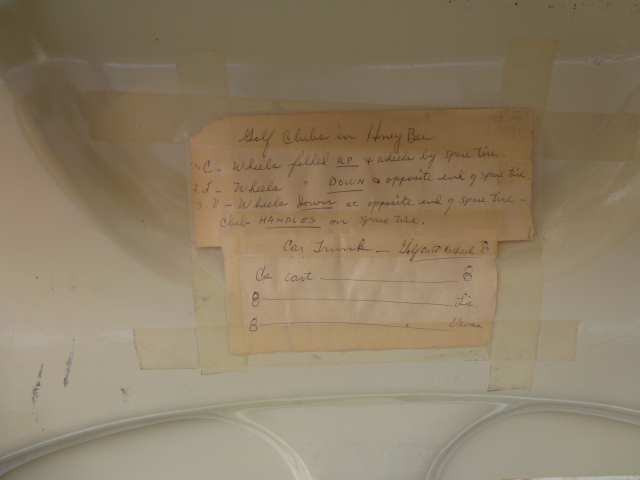 Golf Clubs in Honey Bee
1. C - Wheels folded UP & wheels by spare tire
2. L - Wheels " DOWN & opposite end of spare tire
3. V - Wheels Down at opposite end of spare tire -
Club HANDLES on spare tire.
Car Trunk - Golf cart wheel 8
C's cart 8
8 L's
8 Verna